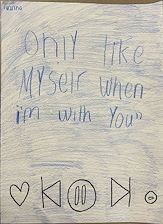 only like
Myself when
im with You"